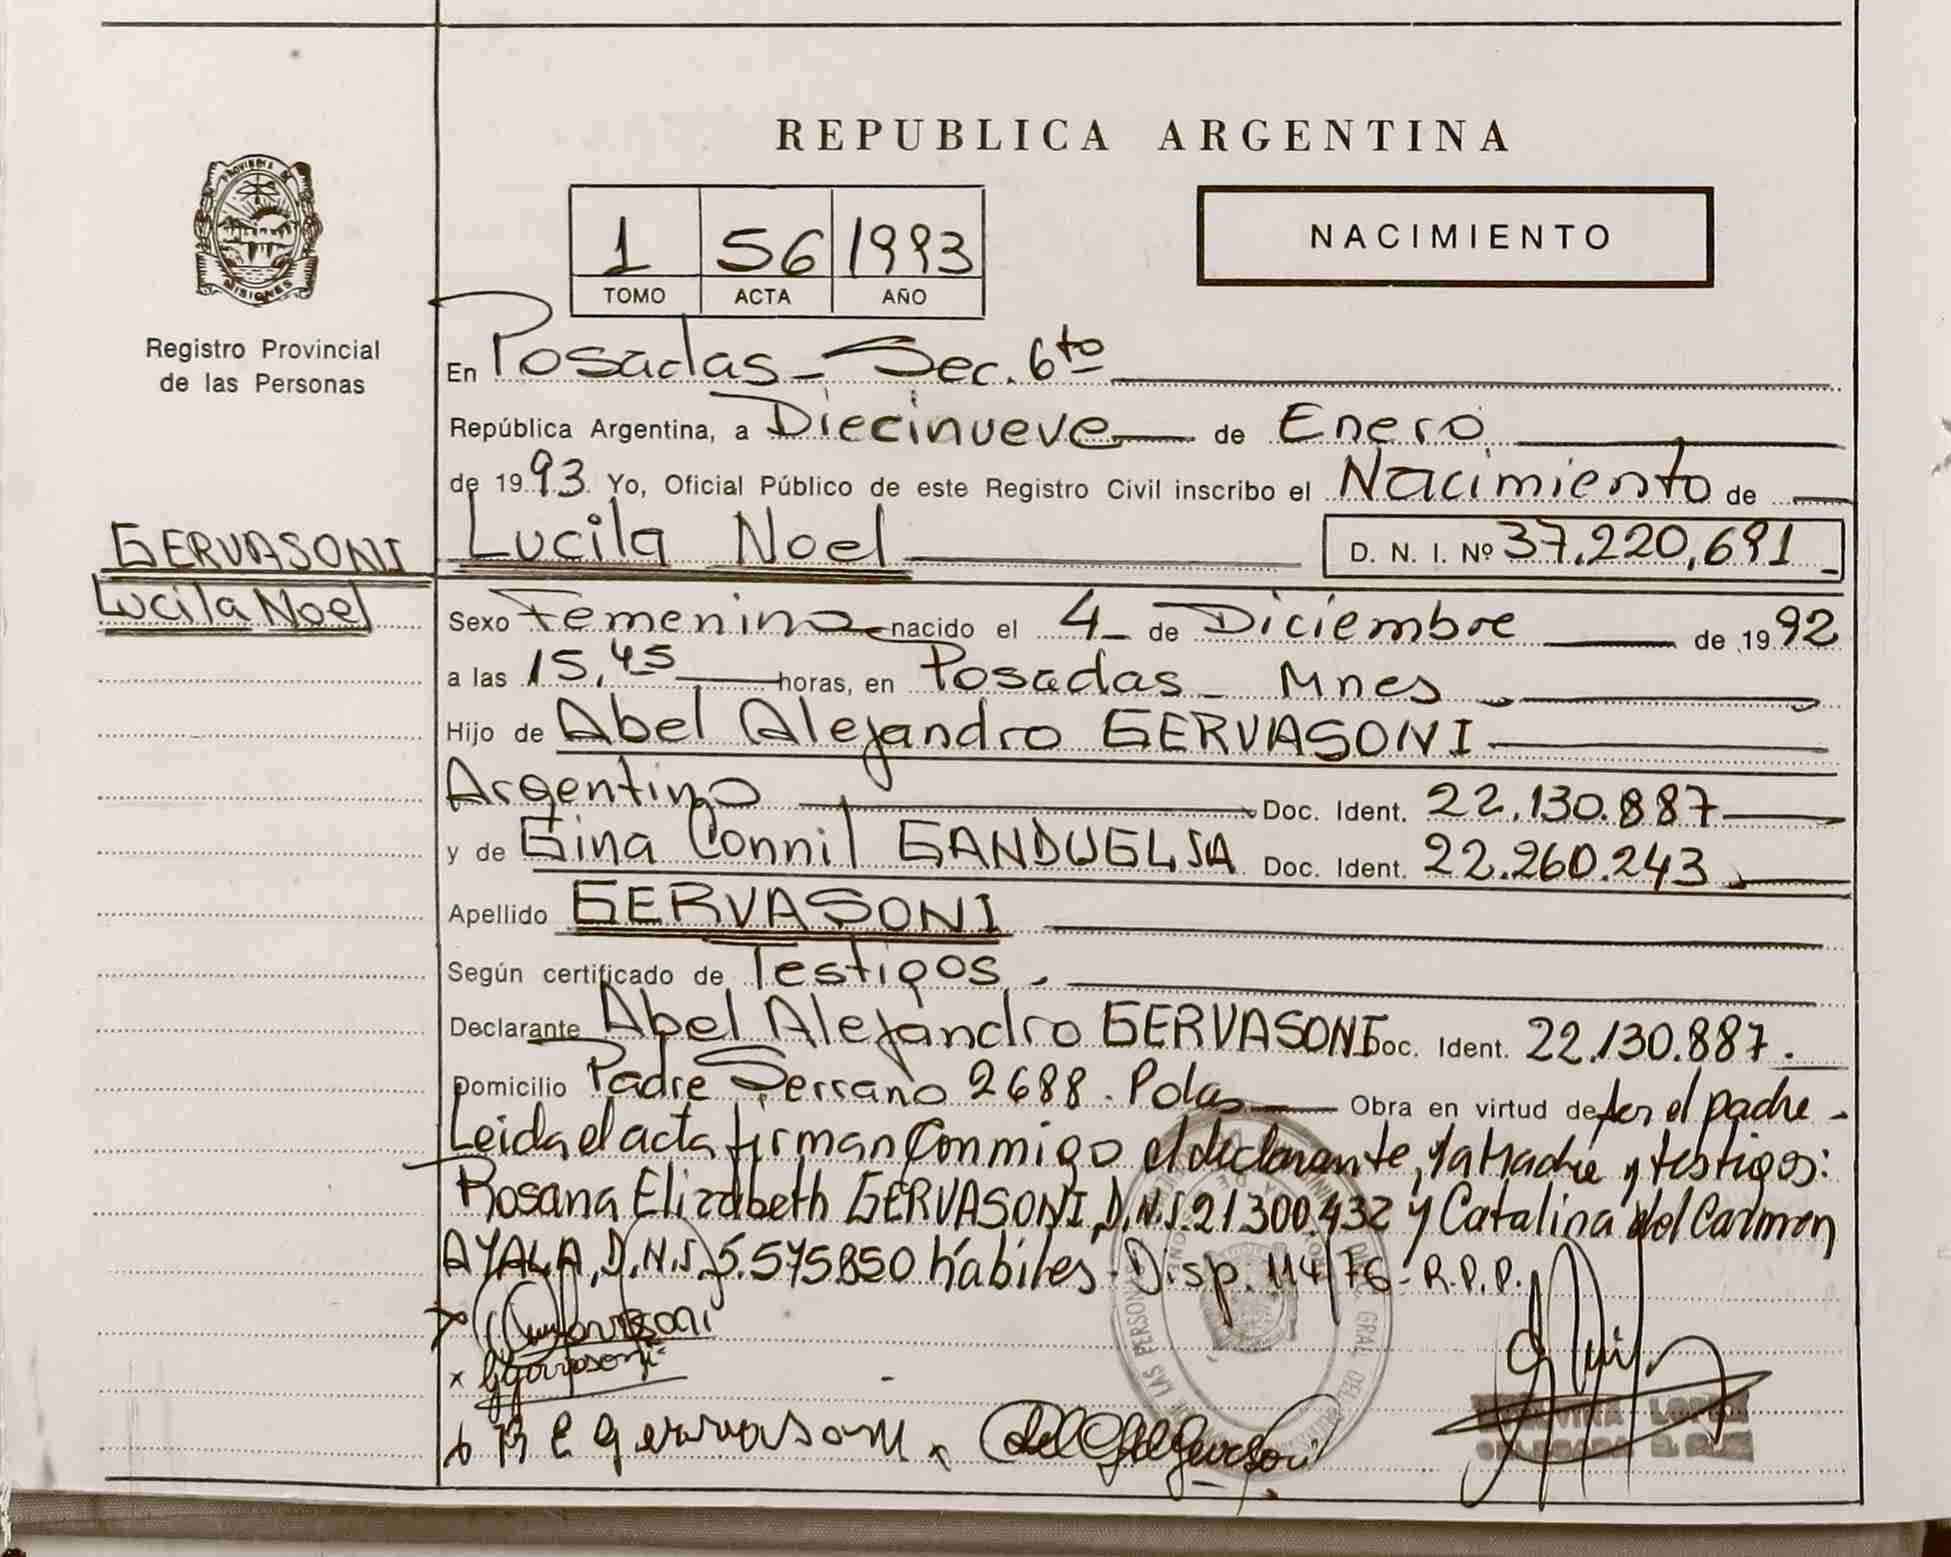 REPUBLICA ARGENTINA
PROVINCIA DE MISIONES
Registro Provincial
de las Personas
1 56 1993
TOMO ACTA AÑO
NACIMIENTO
En Posadas - Sec. 6to
República Argentina, a Diecinueve de Enero
de 1993 Yo, Oficial Público de este Registro Civil inscribo el Nacimiento de
GERVASONI
Lucila Noel
Lucila Noel D. N. I. Nº 37.220,691
Sexo Femenino nacido el 4 de Diciembre de 1992
a las 15,45 horas, en Posadas - Mnes
Hijo de Abel Alejandro GERVASONI
Argentino Doc. Ident. 22.130.887
y de Gina Connil Doc. Ident. 22.260.243
Apellido GERVASONI
Según certificado de Testigos.
Declarante Abel Alejandro GERVASONI Doc. Ident. 22.130.887.
Domicilio Padre Serrano 2688. Pdas Obra en virtud de ser el padre -
Leida el acta firman Conmigo el declarante, la Madre y testigos:
Rosana Elizabeth GERVASONI, D.N.I. 21.300.432 y Catalina del Carmen
AYALA, D.N.I. 5.575850 hábiles. Disp. 114/76 - R.P.P.
R E Gervasoni